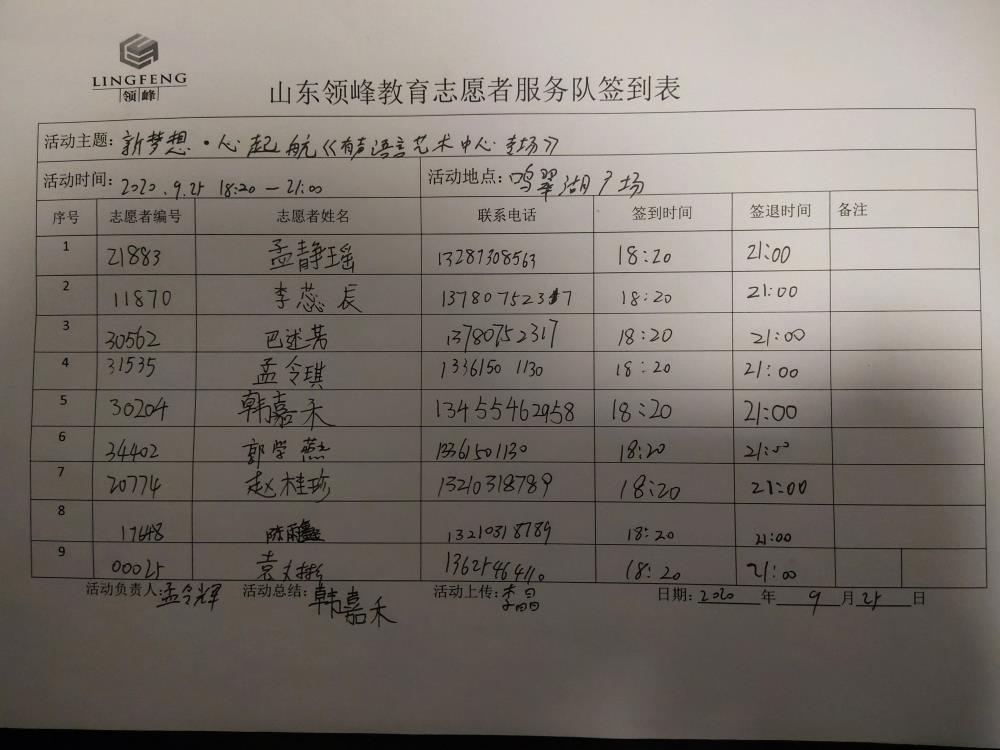 LINGFENG
领峰
山东领峰教育志愿者服务队签到表
活动主题：新梦想·心起航《有声语言艺术中心专场》
活动时间：2020.9.25 18:20—21:00 活动地点：鸣翠湖广场
序号 志愿者编号 志愿者姓名 联系电话 签到时间 签退时间 备注
1 21883 孟静瑶 13287308563 18:20 21:00
2 11870 李蕊辰 13780752317 18:20 21:00
3 30562 巴述芳 13780752317 18:20 21:00
4 31535 孟令琪 1336150 1130 18:20 21:00
5 30204 韩嘉禾 13455462958 18:20 21:00
6 34402 郭学燕 13361501130 18:20 21:00
7 20774 赵桂珍 13210318789 18:20 21:00
8 17648 陈雨鑫 13210318789 18:20 21:00
9 00025 袁文彬 13625464110 18:20 21:00
活动负责人：孟令辉 活动总结：韩嘉禾 活动上传：李晶 日期：2020年9月25日